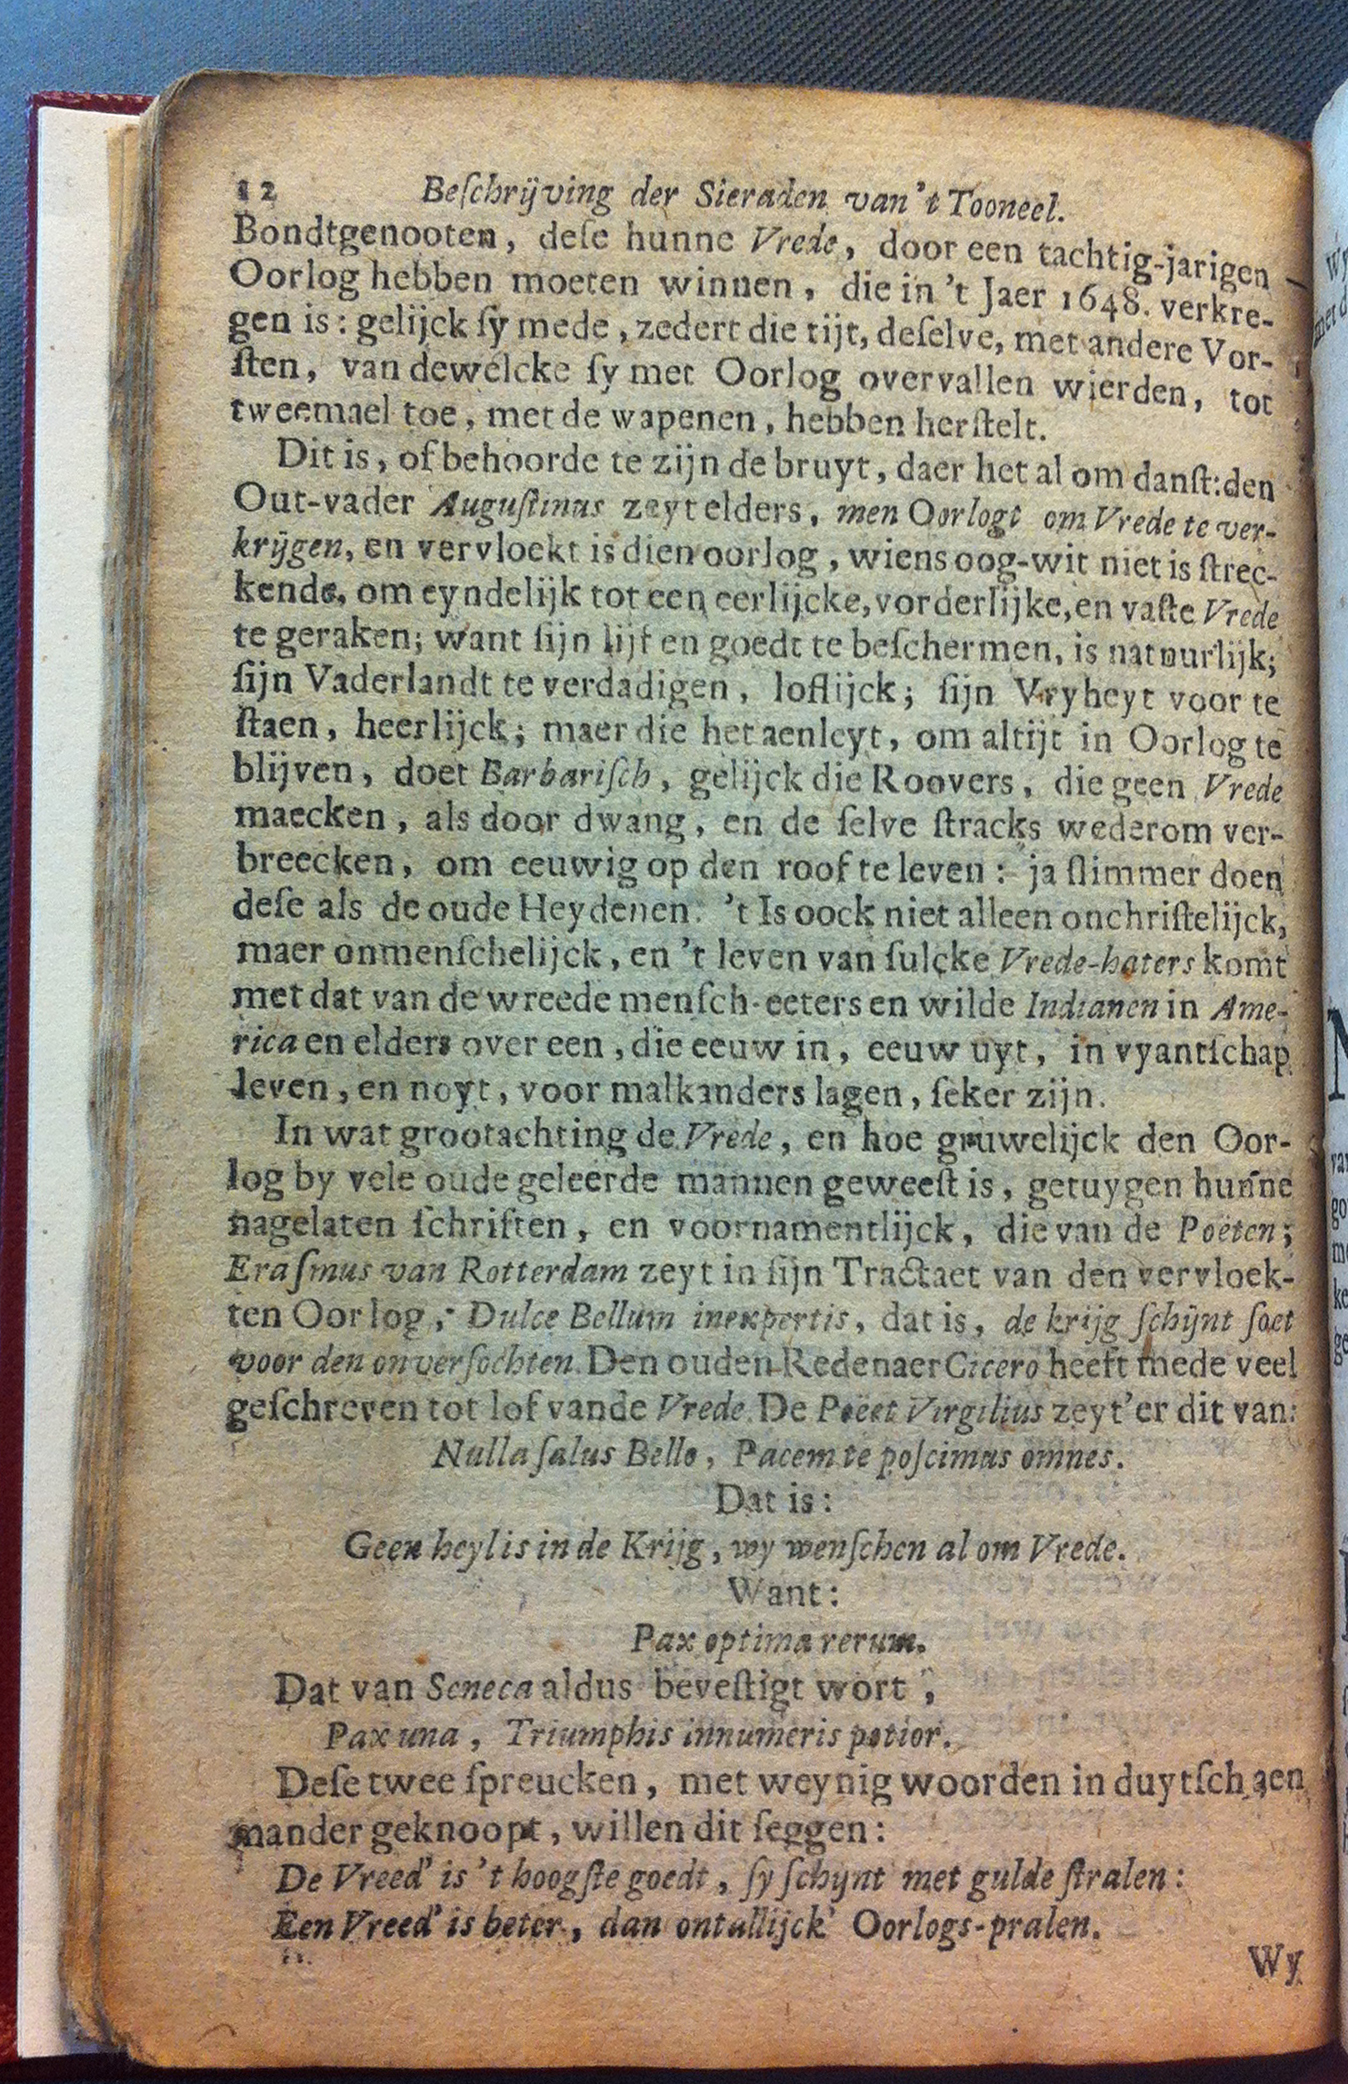 12 Beſchrijving der Sieraden van 't Tooneel.
Bondtgenooten, deſe hunne Vrede, door een tachtig-jarigen
Oorlog hebben moeten winnen, die in 't Jaer 1648. verkre-
gen is: gelijck ſy mede, zedert die tijt, deſelve, met andere Vor-
ſten, van dewelcke ſy met Oorlog overvallen wierden, tot
tweemael toe, met de wapenen, hebben herſtelt.
Dit is, of behoorde te zijn de bruyt, daer het al om danſt: den
Out-vader Auguſtinus zeyt elders, men Oorlogt om Vrede te ver-
krijgen, en vervloekt is dien oorlog, wiens oog-wit niet is ſtrec-
kende, om eyndelijk tot een eerlijcke, vorderlijke, en vaſte Vrede
te geraken; want ſijn lijf en goedt te beſchermen, is natuurlijk;
ſijn Vaderlandt te verdadigen, loflijck; ſijn Vryheyt voor te
ſtaen, heerlijck; maer die het aenleyt, om altijt in Oorlog te
blijven, doet Barbariſch, gelijck die Roovers, die geen Vrede
maecken, als door dwang, en de ſelve ſtracks wederom ver-
breecken, om eeuwig op den roof te leven: ja ſlimmer doen
deſe als de oude Heydenen. 't Is oock niet alleen onchriſtelijck,
maer onmenſchelijck, en 't leven van ſulcke Vrede-haters komt
met dat van de wreede menſch-eeters en wilde Indianen in Ame-
rica en elders over een, die eeuw in, eeuw uyt, in vyantſchap
leven, en noyt, voor malkanders lagen, ſeker zijn.
In wat grootachting de Vrede, en hoe gruwelijck den Oor-
log by vele oude geleerde mannen geweeſt is, getuygen hunne
nagelaten ſchriften, en voornamentlijck, die van de Poëten;
Eraſmus van Rotterdam zeyt in ſijn Tractaet van den vervloek-
ten Oorlog, Dulce Bellum inexpertis, dat is, de krijg ſchijnt ſoet
voor den onverſochten. Den ouden Redenaer Cicero heeft mede veel
geſchreven tot lof vande Vrede. De Poëet Virgilius zeyt'er dit van:
Nulla ſalus Bello, Pacem te poſcimus omnes.
Dat is:
Geen heyl is in de Krijg, wy wenſchen al om Vrede.
Want:
Pax optima rerum.
Dat van Seneca aldus beveſtigt wort,
Pax una, Triumphis innumeris potior.
Deſe twee ſpreucken, met weynig woorden in duytſch aen
mander geknoopt, willen dit ſeggen:
De Vreed' is 't hoogſte goedt, ſy ſchijnt met gulde ſtralen:
Een Vreed' is beter, dan ontallijck' Oorlogs-pralen.
Wy